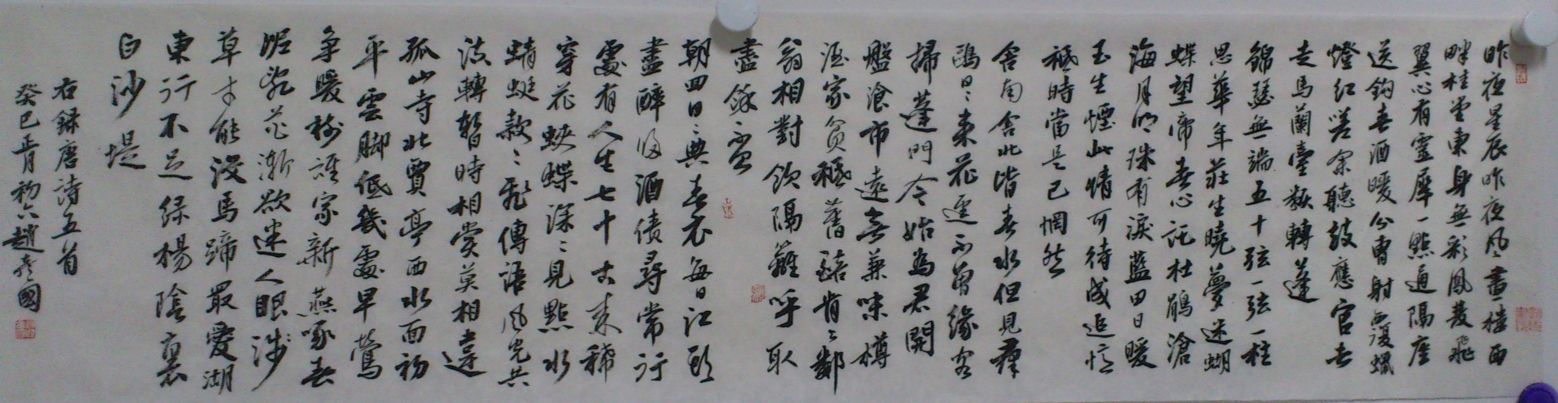 昨夜星辰昨夜風畫樓西
畔桂堂東身無彩鳳雙飛
翼心有靈犀一點通隔座
送鉤春酒暖分曹射覆蠟
燈紅嗟余聽鼓應官去
走馬蘭臺類轉蓬
錦瑟無端五十弦一弦一柱
思華年莊生曉夢迷蝴
蝶望帝春心託杜鵑滄
海月明珠有淚藍田日暖
玉生煙此情可待成追憶
祇時當是已惘然
舍南舍北皆春水但見群
鷗日〻來花逕不曾緣客
掃蓬門今始為君開
盤飧市遠無兼味樽
酒家貧祗舊醅肯〻鄰
翁相對飲隔籬呼取
盡餘盃
朝回日〻典春衣每日江頭
盡醉歸酒債尋常行
處有人生七十古來稀
穿花蛺蝶深〻見點水
蜻蜓款〻飛傳語風光共
流轉暫時相賞莫相違
孤山寺北賈亭西水面初
平雲腳低幾處早鶯
爭暖樹誰家新燕啄春
泥亂花漸欲迷人眼淺
草才能沒馬蹄最愛湖
東行不足綠楊陰裏
白沙堤
右錄唐詩五首
癸巳 初六趙 國